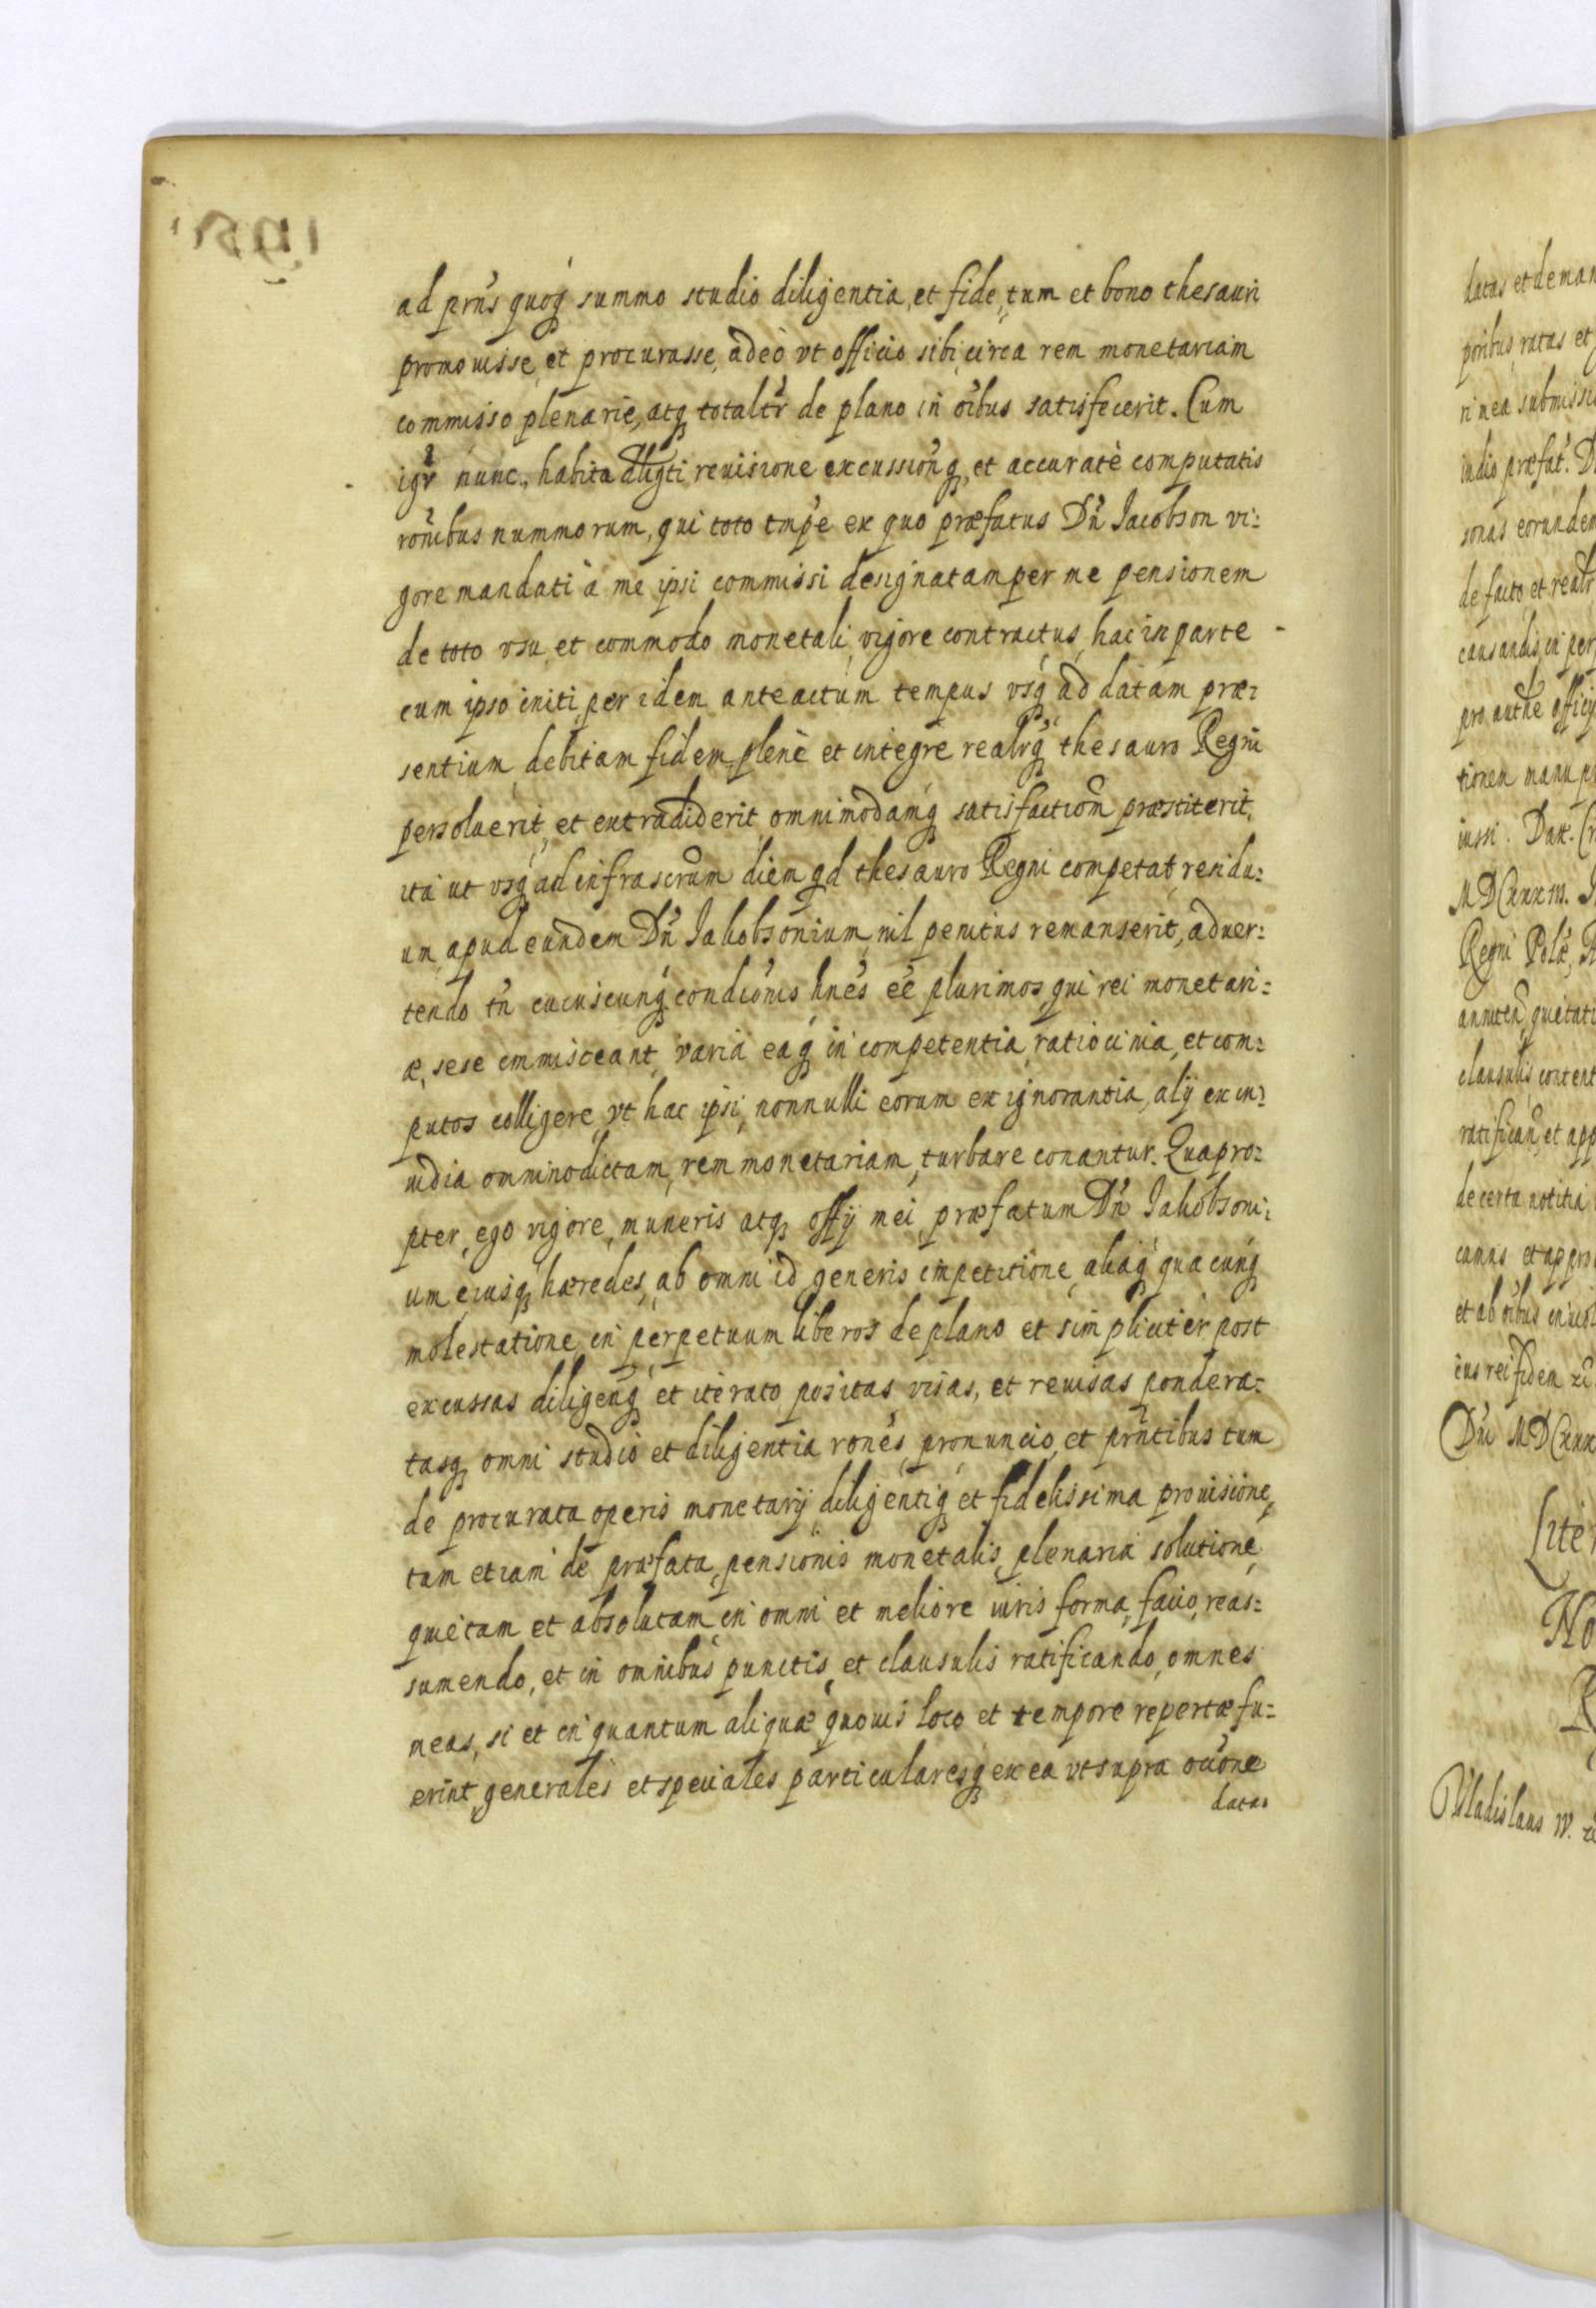 ad prńs quoq́ summo studio diligentia, et fide, tum et bono thesauri
promouisse, et procurasse, adeò vt officio sibi, circa rem monetariam
commisso plenarie, atq totalt́r de plano in óibus satisfecerit. Cum
igŕ nunc, habita dligti reuisione excussionq́, et accuratè computatis
rońibus nummorum, qui toto tmpé ex quo præfatus Dń Jacobson vi:
gore mandati à me ipsi commissi designatam per me pensionem
de toto vsu, et commodo monetali, vigore contractus, hac in parte
cum ipso initi, per idem anteactum tempus vsq́ ad datam præ:
sentium, debitam fidem, plenè et integre realrq́, thesauro Regni
persoluerit, et extradiderit, omnimodamq́ satisfactioń præstiterit,
ità ut vsq́ ad infrascŕum diem qd thesauro Regni competat, residu:
um, apud eundem Dń Jakobsonium, nil penitus remanserit, aduer:
tendo tń cuiuscunq́ condiónis hńes eé plurimos, qui rei monetari:
æ, sese immisceant, varia eaq́ incompetentia, ratiocinia, et com:
putos colligere, vt hac ipsi, nonnulli eorum ex ignorantia, alij ex in:
uidia omninodictam, rem monetariam, turbare conantur. Quapro:
pter, ego vigore, muneris atq offij mei, præfatum Dń Jakobsoni:
um, eiusq, hæredes, ab omni id generis impetitione, aliaq́ quacunq́
molestatione, in perpetuum liberos de plano et simpliciter post
excussas diligenq́ et iterato positas, visas, et reuisas, pondera:
tasq, omni studio et diligentia ronés, pronuncio, et prńtibus tum
de procurata operis monetarij diligentiq́ et fidelissima prouisione,
tum etiam de præfata, pensionis monetalis, plenaria solutione,
quietam et absolutam, in omni et meliore iuris forma, facio, reas:
sumendo, et in omnibus punctis, et clausulis ratificando, omnes
meas, si et in quantum aliquæ quouis loco et tempore repertæ fu:
erint, generales et speciales particularesq́, ex ea vt supra occóne
datas
datas et deman
poribus, ratas et
ri mea submissi
iudio præfat́. D
sonas eorunden
de facto et realŕ
causandis, in per
pro authé officij
tionem manu pr
iussi. Dat. Cr
MDCxxxiii. J
Regni Polæ, 
annuteń, quietati
clausulis, content
ratificań, et app
de certa notitia
camus et appro
et ab óibus inuiol
cuius rei fidem
Dńi MDCxxx
Liter
No
R
Vladislaus IV.